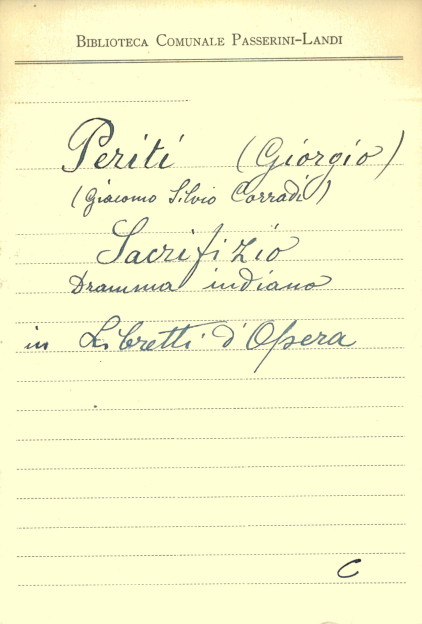 BIBLIOTECA COMUNALE PASSERINI-LANDI
Periti (Giorgio)
(Giacomo Silvio Corradi)
Sacrifizio
Dramma indiano
in Libretti d'Opera
C